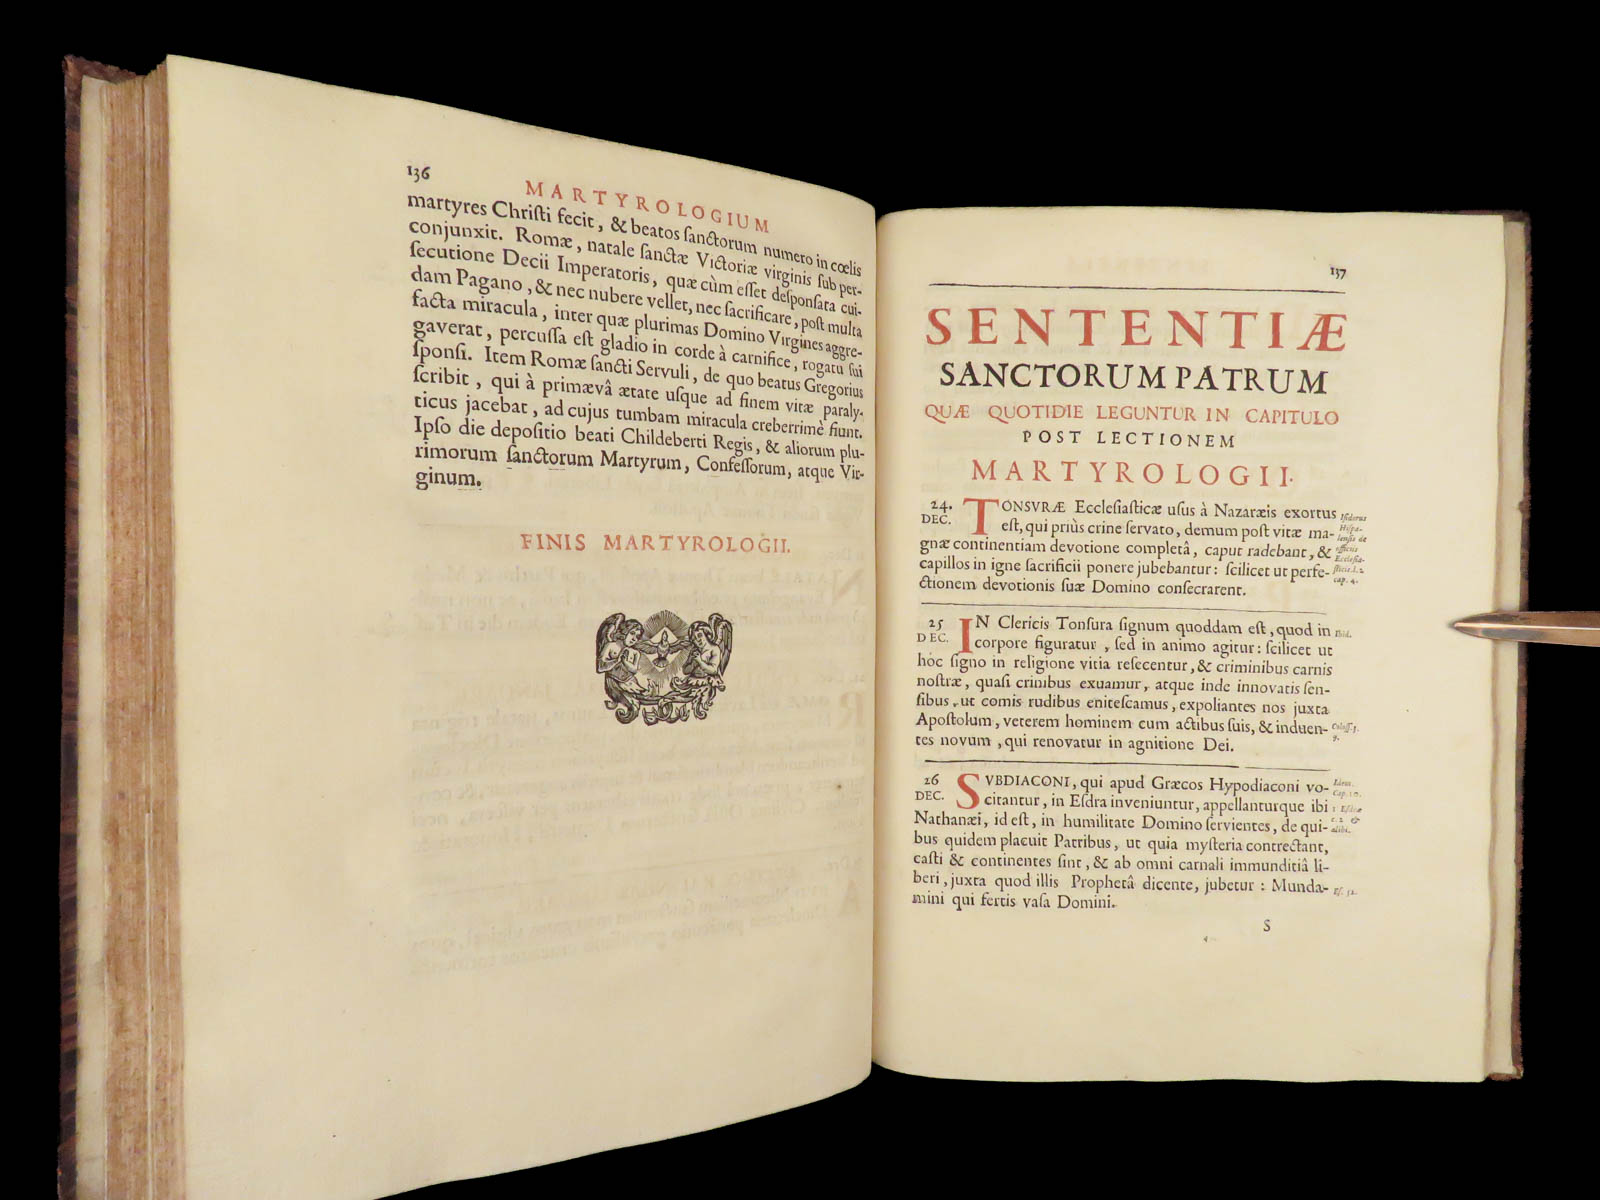 136
MARTYROLOGIUM
martyres Chriſti fecit, & beatos ſanctorum numero in cœlis
conjunxit. Romæ, natale ſanctæ Victoriæ virginis ſub per-
ſecutione Decii Imperatoris, quæ cùm eſſet deſponſata cui-
dam Pagano, & nec nubere vellet, nec ſacrificare, poſt multa
facta miracula, inter quæ plurimas Domino Virgines aggre-
gaverat, percuſſa eſt gladio in corde à carnifice, rogatu ſui
ſponſi. Item Romæ ſancti Servuli, de quo beatus Gregorius
ſcribit, qui à primævâ ætate uſque ad finem vitæ paraly-
ticus jacebat, ad cujus tumbam miracula creberrimè fiunt.
Ipſo die depoſitio beati Childeberti Regis, & aliorum plu-
rimorum ſanctorum Martyrum, Confeſſorum, atque Vir-
ginum.
FINIS MARTYROLOGII.
137
SENTENTIÆ
SANCTORUM PATRUM
QUÆ QUOTIDIE LEGUNTUR IN CAPITULO
POST LECTIONEM
MARTYROLOGII.
24. DEC. TONSVRÆ Eccleſiaſticæ uſus à Nazaræis exortus
eſt, qui priùs crine ſervato, demum poſt vitæ ma-
gnæ continentiam devotione completâ, caput radebant, &
capillos in igne ſacrificii ponere jubebantur: ſcilicet ut perfe-
ctionem devotionis ſuæ Domino conſecrarent.
Iſidorus
Hiſpa-
lenſis de
officiis
Eccleſia-
ſticis l. 2.
cap. 4.
25 DEC. IN Clericis Tonſura ſignum quoddam eſt, quod in
corpore figuratur, ſed in animo agitur: ſcilicet ut
hoc ſigno in religione vitia reſecentur, & criminibus carnis
noſtræ, quaſi crinibus exuamur, atque inde innovatis ſen-
ſibus, ut comis rudibus eniteſcamus, expoliantes nos juxta
Apoſtolum, veterem hominem cum actibus ſuis, & induen-
tes novum, qui renovatur in agnitione Dei.
Ibid.
Coloſſ. 3.
9.
26 DEC. SVBDIACONI, qui apud Græcos Hypodiaconi vo-
citantur, in Eſdra inveniuntur, appellanturque ibi
Nathanæi, id eſt, in humilitate Domino ſervientes, de qui-
bus quidem placuit Patribus, ut quia myſteria contrectant,
caſti & continentes ſint, & ab omni carnali immunditiâ li-
beri, juxta quod illis Prophetâ dicente, jubetur: Munda-
mini qui fertis vaſa Domini.
Idem.
Cap. 10.
1 Eſdræ
c. 2 &
alibi.
Eſ. 52.
S